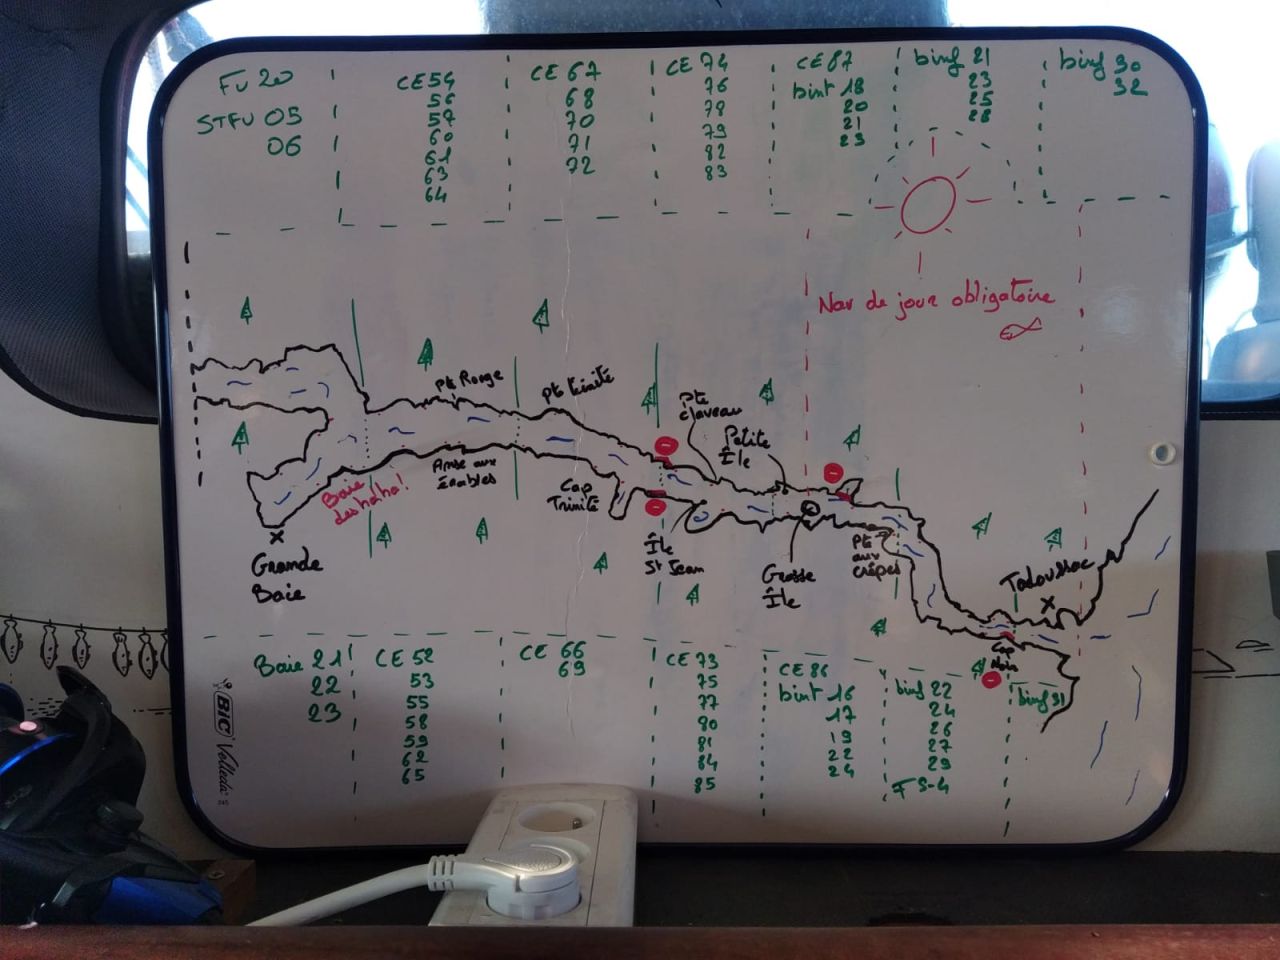 FU 20
STFU 05
06
CE 54
56
57
60
61
63
64
CE 67
68
70
71
72
CE 74
76
78
79
82
83
CE 87
bint 18
20
21
23
binf 21
23
25
28
binf 30
32
Nav de jour obligatoire
Pte Rouge
Pte Trinité
Pte
Claveau
Petite
Île
Baie
des ha!ha!
Anse aux
Érables
Cap
Trinité
Île
St Jean
Grosse
Île
Pte
aux
crêpes
Tadoussac
Cap
Noir
Grande
Baie
Baie 21
22
23
CE 52
53
55
58
59
62
65
CE 66
69
CE 73
75
77
80
81
84
85
CE 86
bint 16
17
19
22
24
binf 22
24
26
27
29
F S-4
binf 31
BIC Velleda